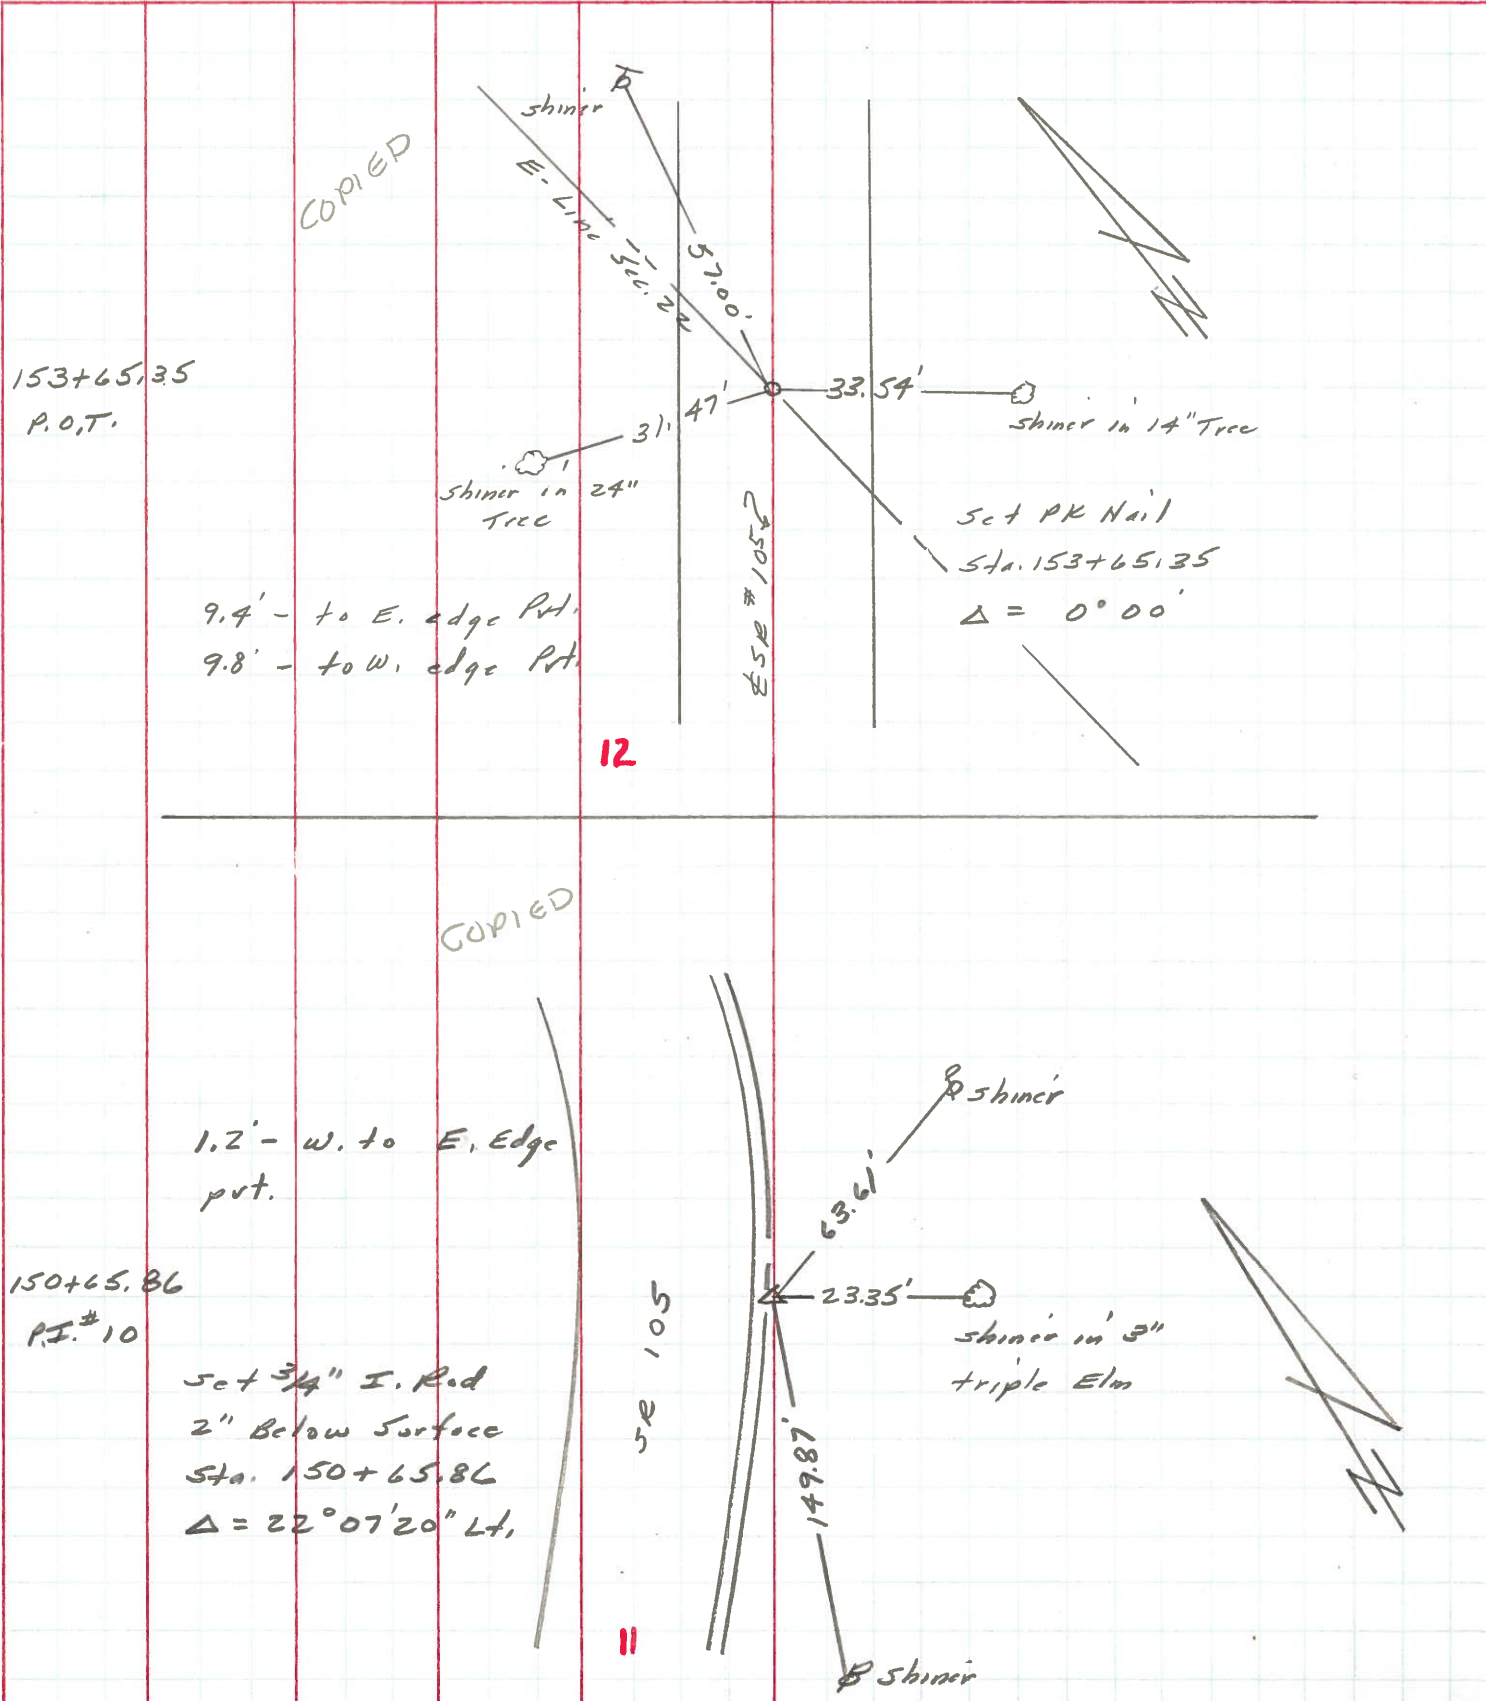 shiner
COPIED
E-Line Sec. 22
57.00'
153+65.35
P.O.T.
33.54'
31.47'
shiner in 14" Tree
shiner in 24"
Tree
Set PK Nail
Sta. 153+65.35
Δ = 0°00'
℄ SR #105
9.4' - to E. edge Pvt.
9.8' - to W. edge Pvt.
N
12
COPIED
shiner
1.2' - W. to E. Edge
pvt.
63.61'
150+65.86
P.I. #10
23.35'
shiner in 3"
triple Elm
SR 105
Set 3/4" I. Rod
2" Below Surface
Sta. 150+65.86
Δ = 22°07'20" Lt.
149.87'
N
11
shiner